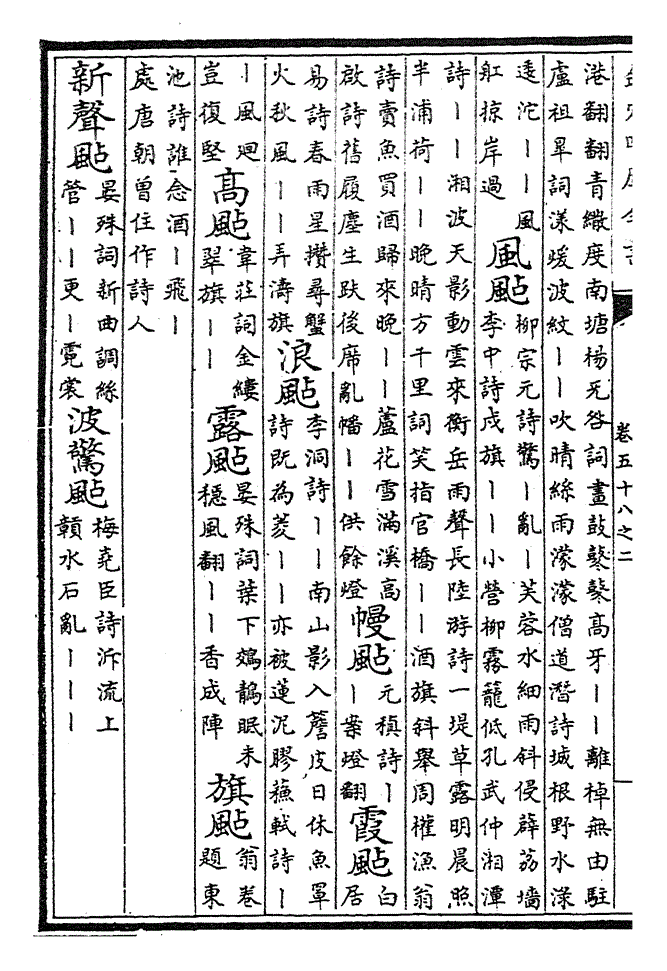 卷五十八之二
港翻翻青繖度南塘楊无咎詞畫鼓鼕鼕高牙丨丨離棹無由駐
盧祖皐詞漾暖波紋丨丨吹晴絲雨濛濛僧道潛詩城根野水淥
逶沱丨丨風
舡掠岸過
風颭
柳宗元詩驚丨亂丨芙蓉水細雨斜侵薜荔墻
李中詩戍旗丨丨小營柳霧籠低孔武仲湘潭
詩丨丨湘波天影動雲來衡岳雨聲長陸游詩一堤草露明晨照
半浦荷丨丨晚晴方千里詞笑指官橋丨丨酒旗斜舉周權漁翁
詩賣魚買酒歸來晚丨丨蘆花雪滿溪高
啟詩舊履塵生趺後席亂幡丨丨供餘燈
幔颭
元稹詩丨
丨案燈翻
霞颭
白
居
易詩春雨星攢尋蟹
火秋風丨丨弄濤旗
浪颭
李洞詩丨丨南山影入簷皮日休魚罩
詩既為菱丨丨亦被蓮泥膠蘇軾詩丨
丨風廻
豈復堅
高颭
韋莊詞金縷
翠旗丨丨
露颭
晏殊詞葉下鵁鶄眠未
穩風翻丨丨香成陣
旗颭
翁卷
題東
池詩誰念酒丨飛丨
處唐朝曾住作詩人
新聲颭
晏殊詞新曲調絲
管丨丨更丨霓裳
波驚颭
梅堯臣詩泝流上
贛水石亂丨丨丨